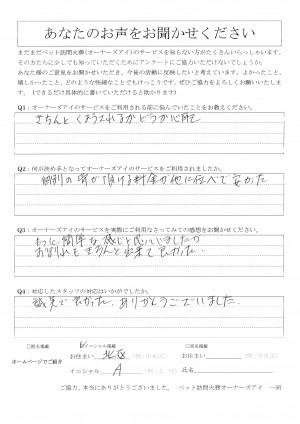 あなたのお声をお聞かせください
まだまだペット訪問火葬(オーナーズアイ)のサービスを知らない方がたくさんいらっしゃいます。
その方たちに少しでも知っていただくためにアンケートにご協力いただけないでしょうか。
あなた様のご意見をお聞かせいただき、今後の活動に反映したいと考えています。よかったこと、
嬉しかったこと、どのような些細なことでもけっこうです。ぜひご協力をよろしくお願いいたしま
す。(できるだけ具体的に書いていただけると助かります)
Q1:オーナーズアイのサービスをご利用される前に悩んでいたことをお教えください。
きちんとくようされるかどうか心配
Q2:何が決め手となってオーナーズアイのサービスをご利用されましたか。
個別の骨が頂ける料金が他に比べて安かった
Q3:オーナーズアイのサービスを実際にご利用なさってみての感想をお聞かせください。
もっと簡単な感じと思っていましたが
お別れもきちんと出来て良かった。
Q4:対応したスタッフの対応はいかがでしたか。
誠実で良かった。ありがとうございました。
□匿名掲載 イニシャル掲載 □実名掲載
ホームページでご紹介 お住まい 北区 (例:中央区) お住まい (例:中央区)
イニシャル A 氏名
ご協力、本当にありがとうございました。 ペット訪問火葬オーナーズアイ 一同